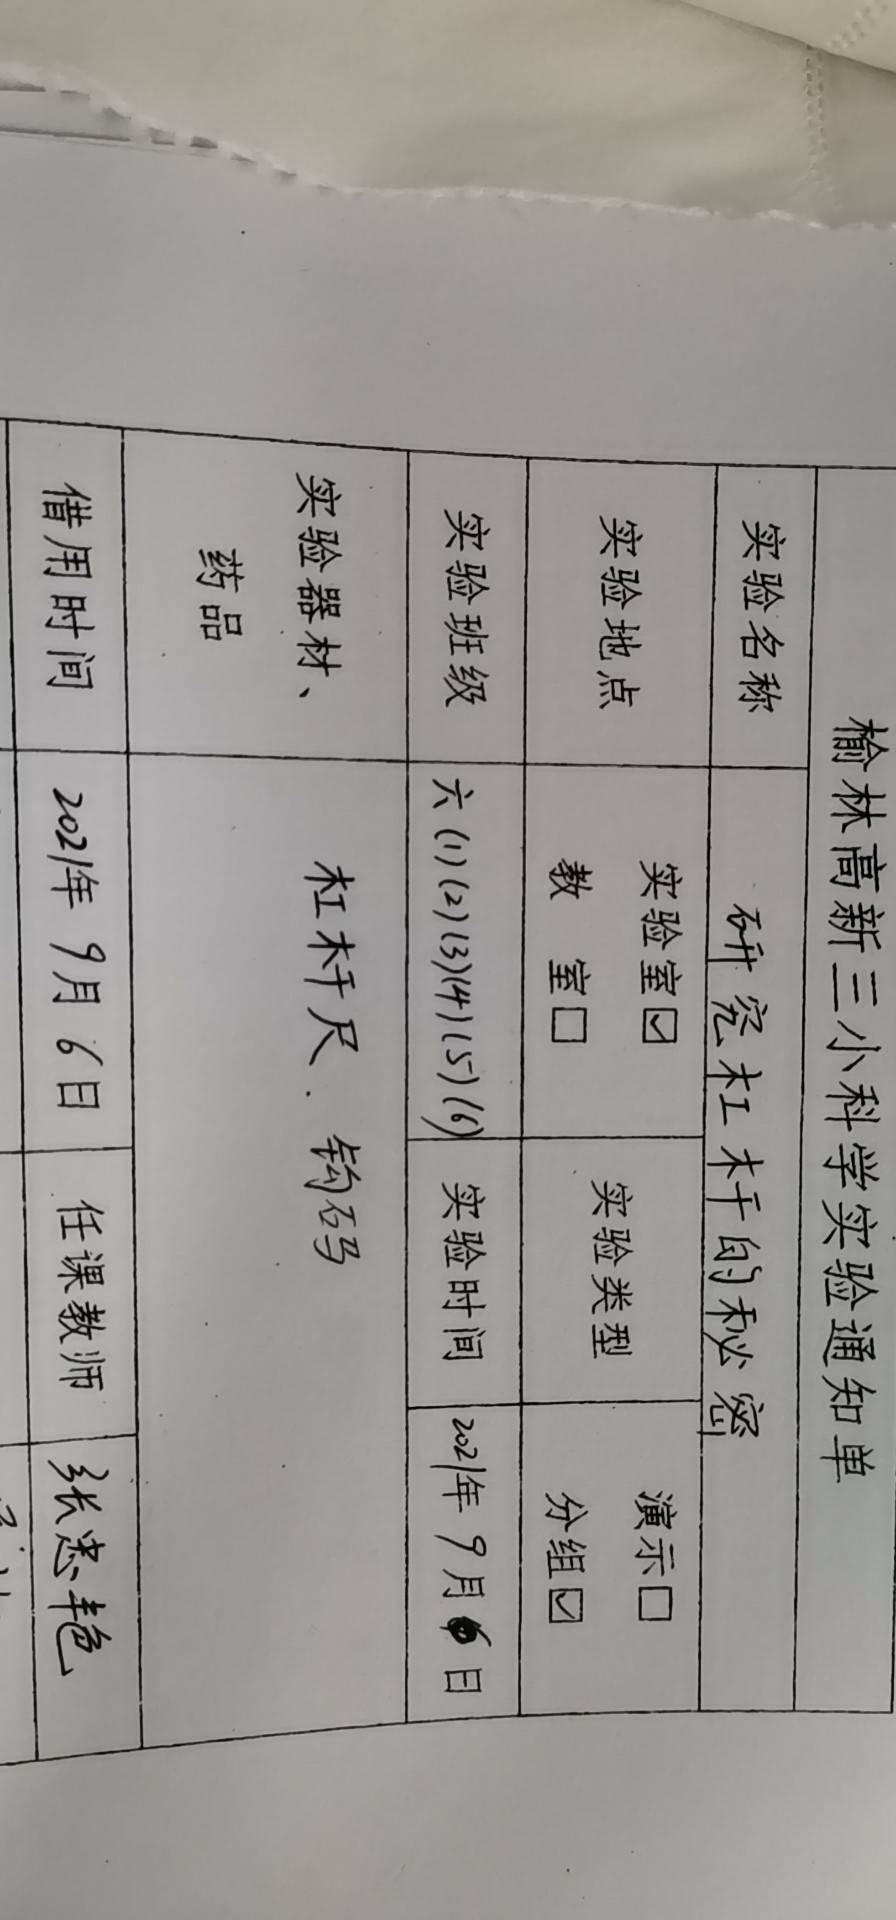 榆林高新三小科学实验通知单
实验名称 研究杠杆的秘密
实验地点 实验室☑ 教 室□ 实验类型 演示□ 分组☑
实验班级 六(1)(2)(3)(4)(5)(6) 实验时间 2021年9月6日
实验器材、药品 杠杆尺、钩码
借用时间 2021年9月6日 任课教师 张忠艳